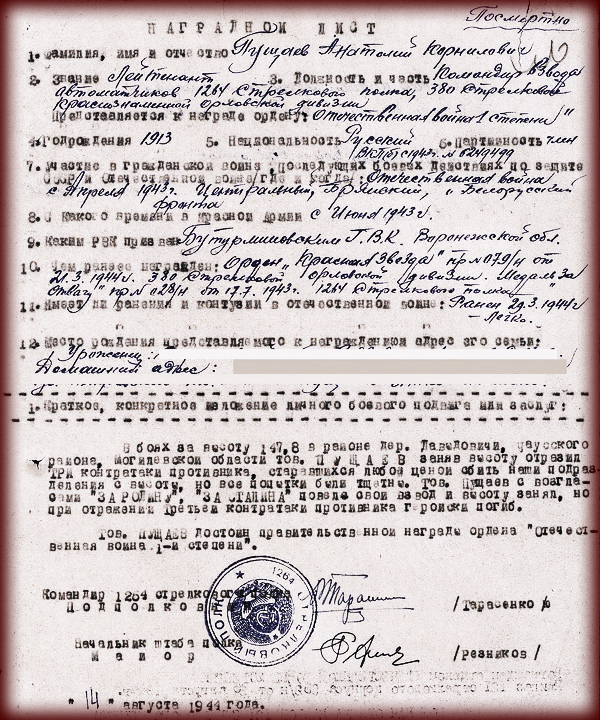 Посмертно
НАГРАДНОЙ ЛИСТ
1. Фамилия, имя и отчество Пущаев Анатолий Корнилович
2. Звание Лейтенант 3. Должность и часть Командир взвода
автоматчиков 1264 Стрелкового полка, 380 Стрелковой
Краснознаменной Орловской дивизии
Представляется к награде ордену: Отечественная война 1 степени"
4. Год рождения 1913 5. Национальность Русский 6. Партийность член
ВКП(б) с 1942г.
7. Участие в гражданской войне, последующих боевых действиях по защите
СССР и Отечественной войне /где и когда/: Отечественная война
с Апреля 1943г. Центральный, Брянский, " Белорусский
фронта
8. С какого времени в Красной Армии с Июня 1943г.
9. Каким РВК призван Бутурлиновским Г.В.К. Воронежской обл.
10. Чем ранее награжден: Орден "Красная Звезда" пр. № 079/н от
21.3.1944г. 380 Стрелковой Орловской дивизии. Медаль За
Отвагу" пр. № 028/н от 17.7.1943г. 1264 Стрелкового полка
11. Имеет ли ранения и контузии в отечественной войне: Ранен 29.3.1944г
– Легко.
12. Место рождения представляемого к награждению и адрес его семьи:
Уроженец:
Домашний адрес :
1. Краткое, конкретное изложение личного боевого подвига или заслуг:
В боях за высоту 147,8 в районе дер. Давидовичи, Чаусского
района, Могилевской области тов. ПУЩАЕВ заняв высоту отразил
ТРИ контратаки противника, старавшихся любой ценой сбить наши подраз-
деления с высоты, но все попытки были тщетны. Тов. Пущаев с возгла-
сами "ЗА РОДИНУ", "ЗА СТАЛИНА" повел свой взвод и высоту занял, но
при отражении третьей контратаки противника геройски погиб.
Тов. ПУЩАЕВ достоин правительственной награде ордена "Отечест-
венная война 1-й степени".
Командир 1264 стрелкового полка
Подполковник /Тарасенко/
1264 СТРЕЛКОВЫЙ ПОЛК
Начальник штаба полка
Майор /Резников/
"14" августа 1944 года.